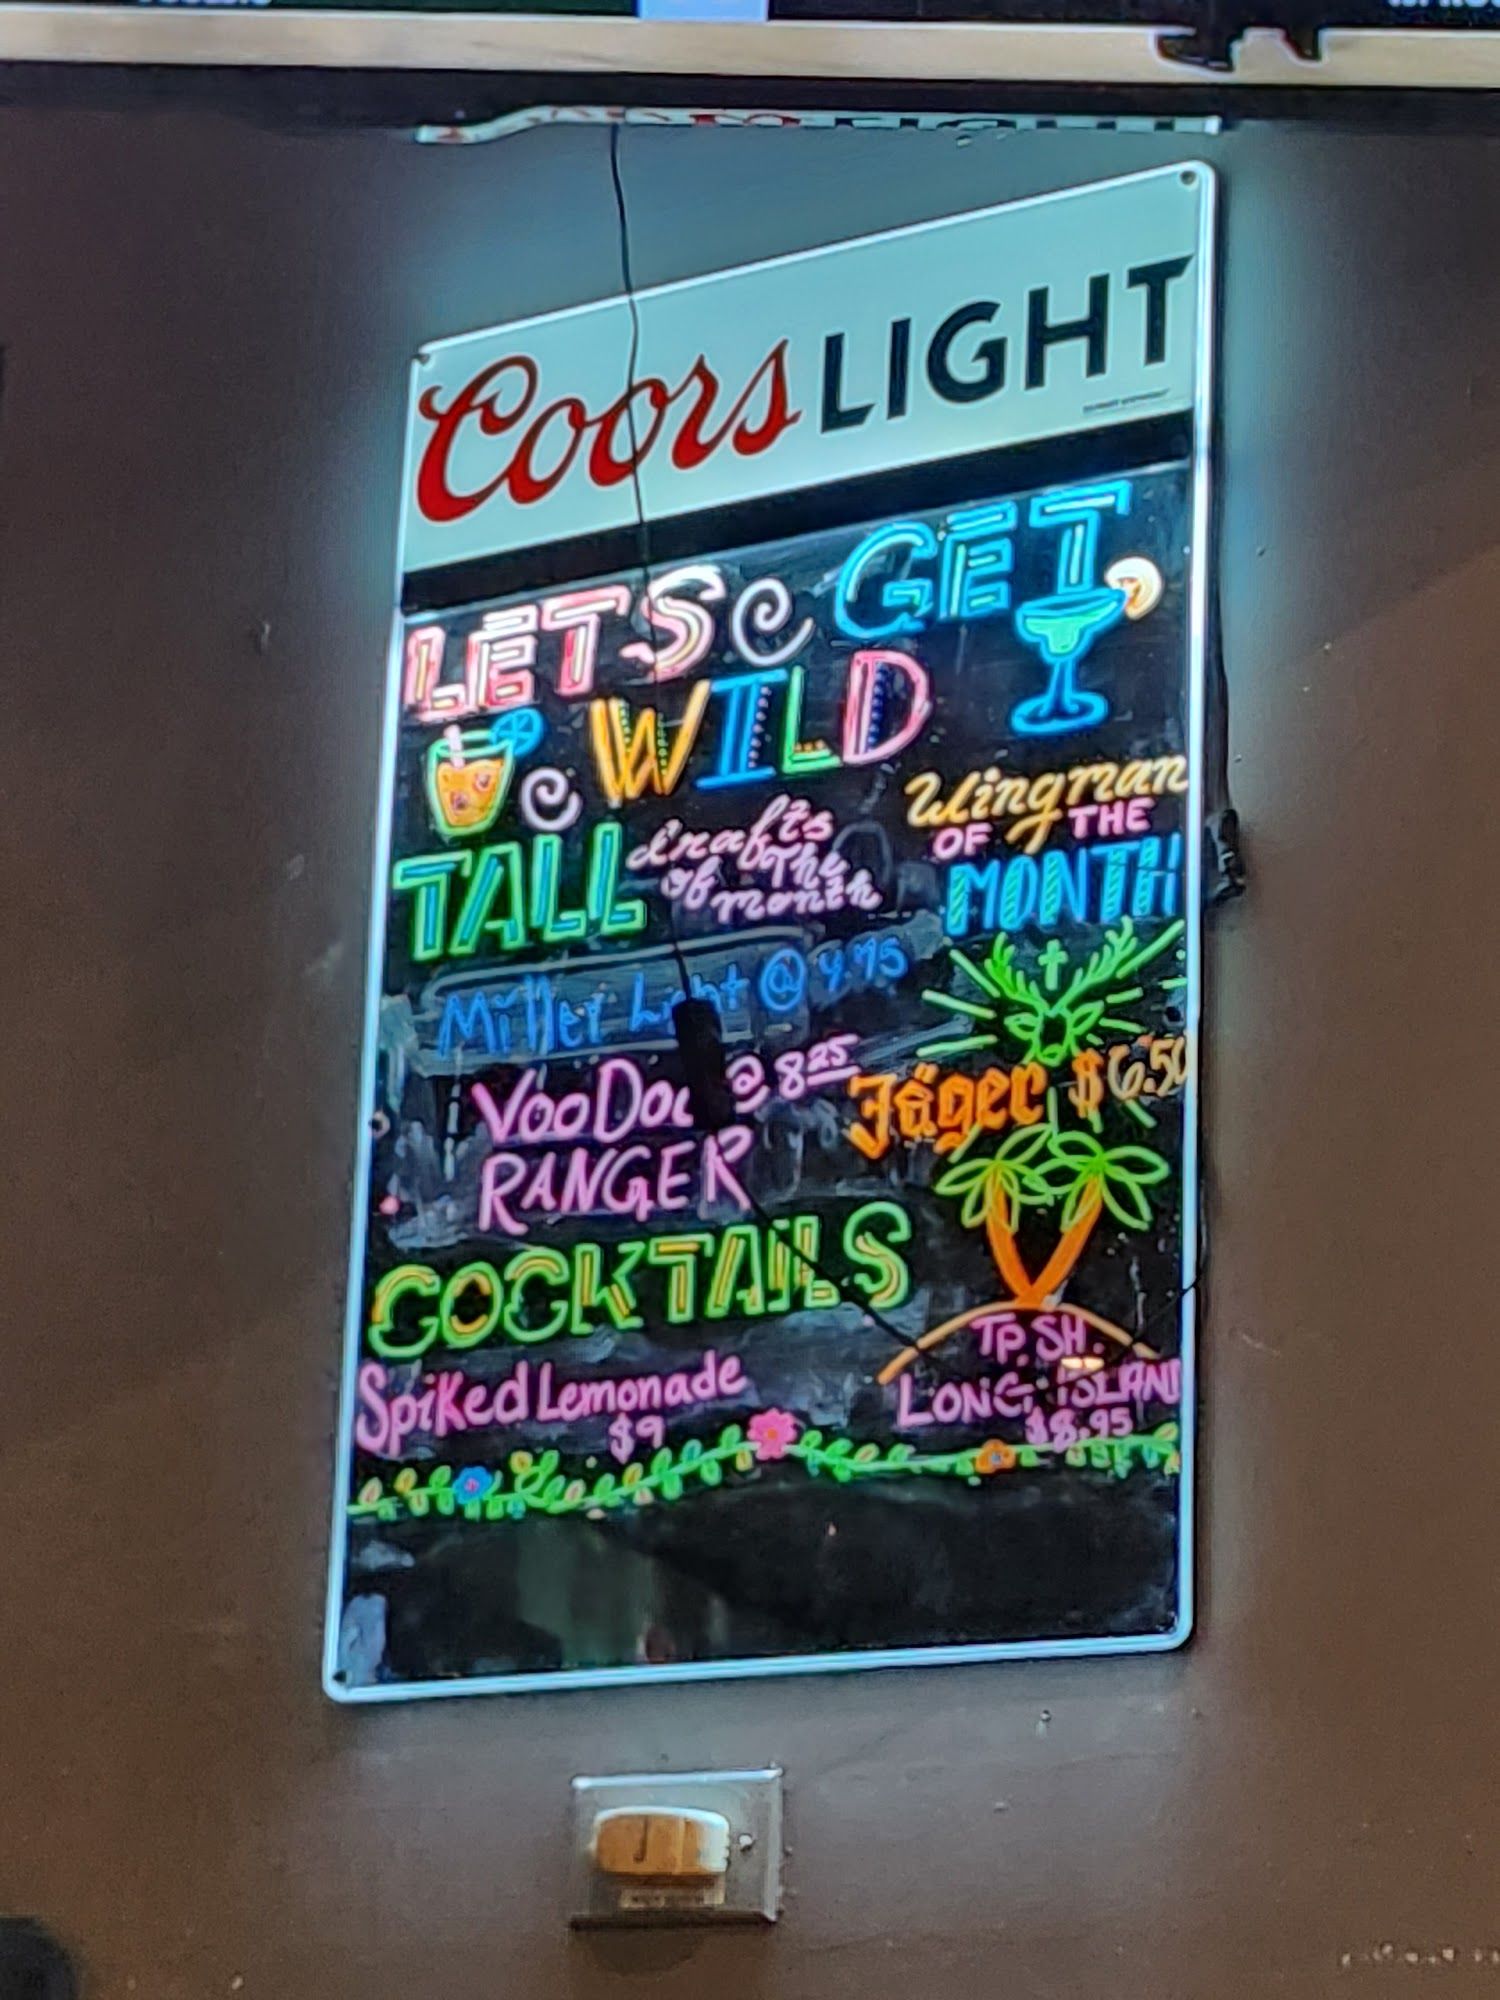 Coors LIGHT
LETS GET
WILD
TALL drafts
of The
month
Miller Light @ 4.75
VooDoo @ 8 25
RANGER
COCKTAILS
Spiked Lemonade
$9
Wingman
OF THE
MONTH
Jäger $6.50
TP. SH.
LONG ISLAND
$8.95